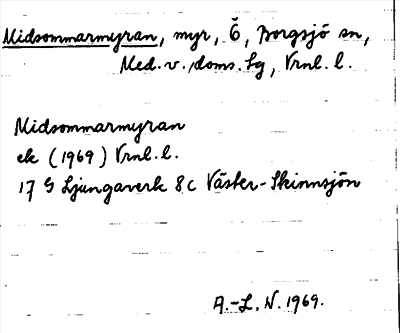 Midsommarmyran, myr, Ö, Borgsjö sn,
Med. v. doms. lg, Vrnl. l.
Midsommarmyran
ek (1969) Vrnl. l.
17 G Ljungaverk 8 c Väster-Skinnsjön
A.-L. N. 1969.